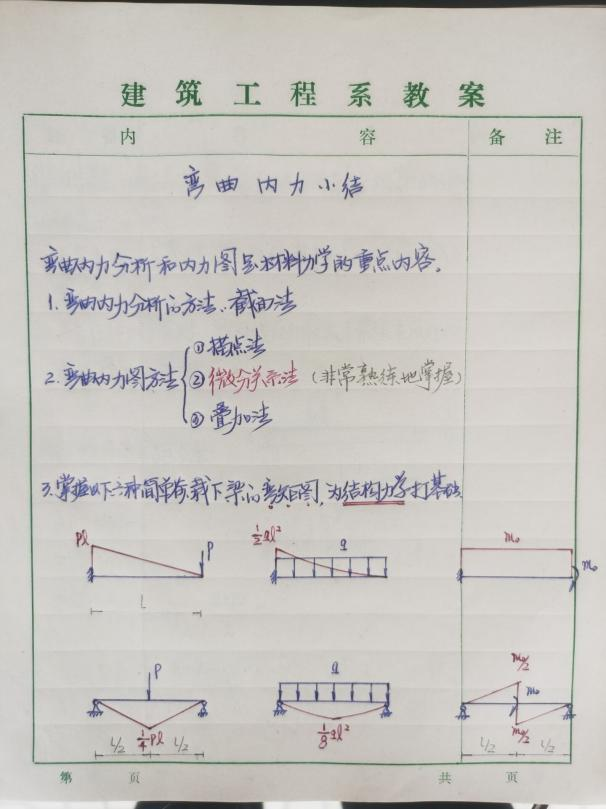 建筑工程系教案
内 容 备 注
弯曲内力小结
弯曲内力分析和内力图是材料力学的重点内容。
1. 弯曲内力分析的方法：截面法
2. 弯曲内力图方法
① 描点法
② 微分关系法（非常熟练地掌握）
③ 叠加法
3. 掌握以下六种简单荷载下梁的弯矩图，为结构力学打基础
Pl P L
½ql² q
m₀ m₀
P ¼Pl L/2 L/2
q ⅛ql²
m₀/2 m₀ m₀/2 L/2 L/2
第 页 共 页